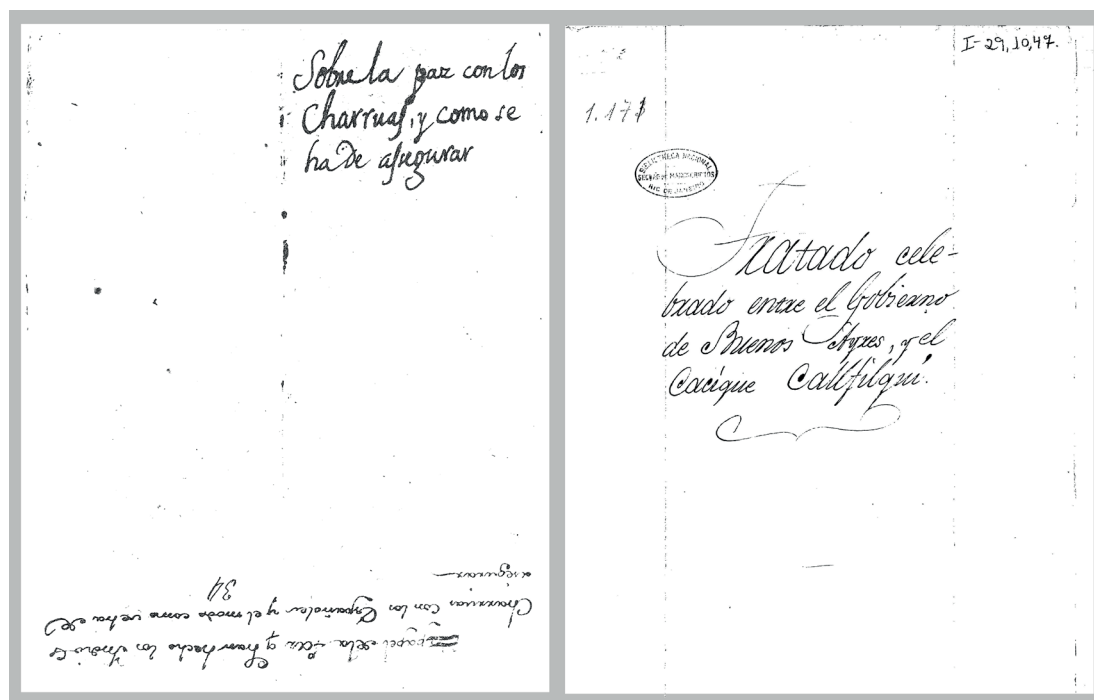 Sobre la paz con los
Charruas, y como se
ha de asegurar
papel de la Paz q han hecho los Indios
Charruas con los Españoles y el modo como se ha de
asegurar
34
I-29,10,47.
1.171
BIBLIOTHECA NACIONAL
SECÇÃO DE MANUSCRIPTOS
RIO DE JANEIRO
Tratado cele-
brado entre el Gobierno
de Buenos Ayres, y el
Cacique Callfilqui.